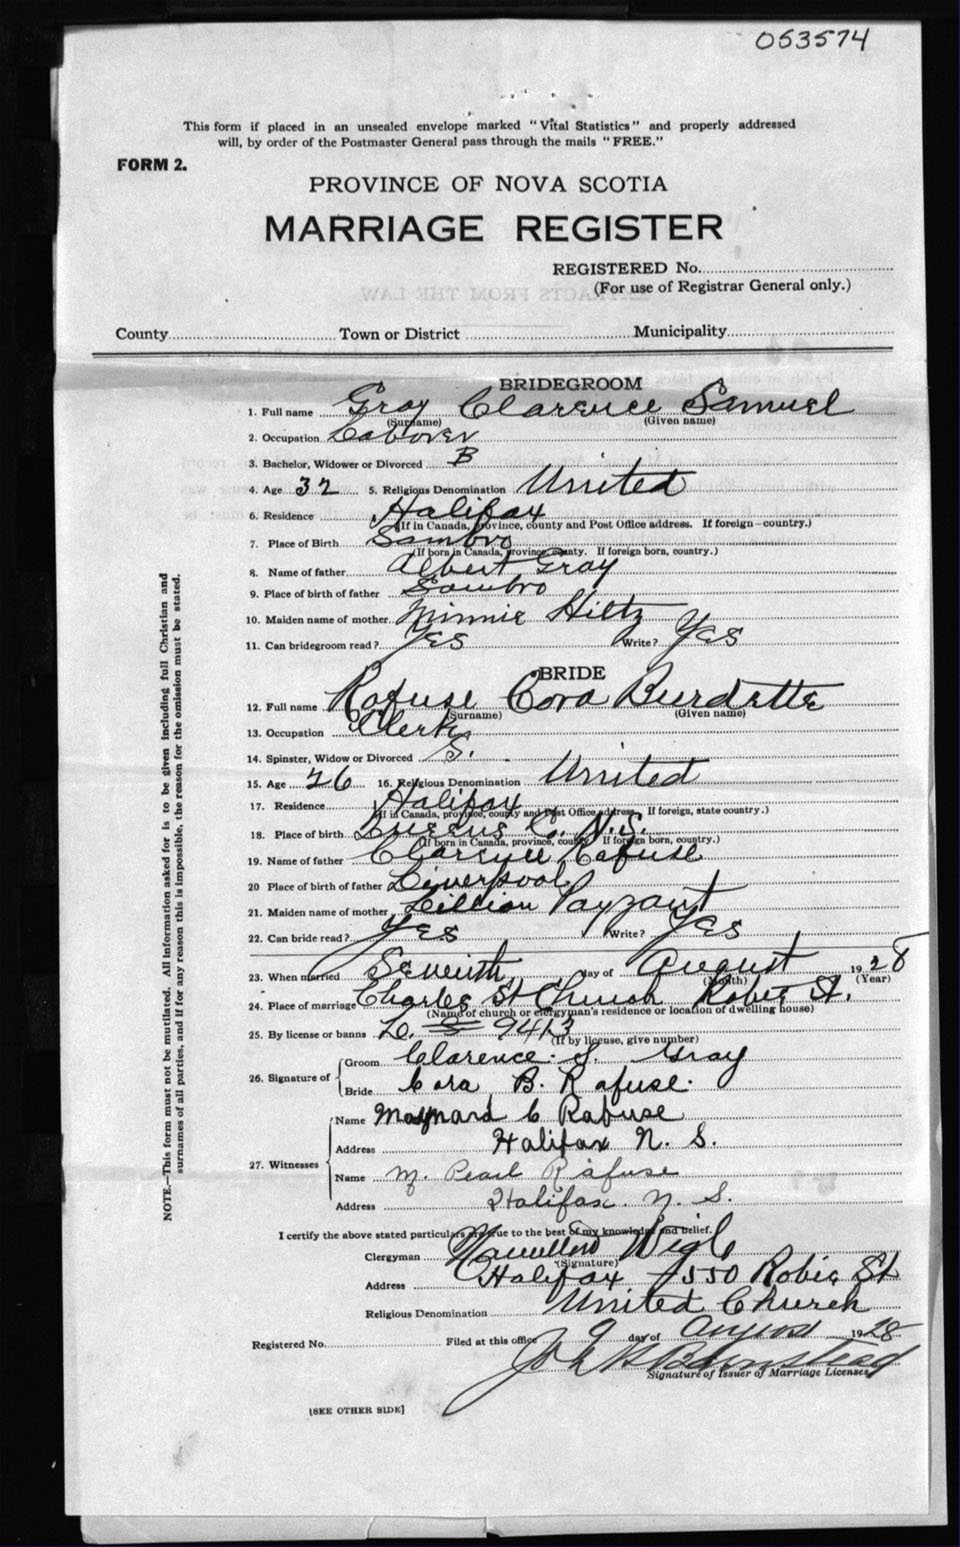 053574
This form if placed in an unsealed envelope marked "Vital Statistics" and properly addressed
will, by order of the Postmaster General pass through the mails "FREE."
FORM 2.
PROVINCE OF NOVA SCOTIA
MARRIAGE REGISTER
REGISTERED No.
(For use of Registrar General only.)
County Town or District Municipality
BRIDEGROOM
1. Full name Gray Clarence Samuel
(Surname) (Given name)
2. Occupation Laborer
3. Bachelor, Widower or Divorced B
4. Age 32 5. Religious Denomination United
6. Residence Halifax
(If in Canada, province, county and Post Office address. If foreign—country.)
7. Place of Birth Sambro
(If born in Canada, province, county. If foreign born, country.)
8. Name of father Albert Gray
9. Place of birth of father Sambro
10. Maiden name of mother Minnie Hiltz
11. Can bridegroom read? Yes Write? Yes
BRIDE
12. Full name Rafuse Cora Burdette
(Surname) (Given name)
13. Occupation Clerk
14. Spinster, Widow or Divorced S.
15. Age 26 16. Religious Denomination United
17. Residence Halifax
(If in Canada, province, county and Post Office address. If foreign, state country.)
18. Place of birth Queens Co. N.S.
(If born in Canada, province, county. If foreign born, country.)
19. Name of father Clarence Rafuse
20 Place of birth of father Liverpool
21. Maiden name of mother Lillian Payzant
22. Can bride read? Yes Write? Yes
23. When married Seventh day of August 1928
(Month) (Year)
24. Place of marriage Charles St Church Robie St.
(Name of church or clergyman's residence or location of dwelling house)
25. By license or banns L. 9413
(If by license, give number)
26. Signature of
Groom Clarence. S. Gray
Bride Cora B. Rafuse.
27. Witnesses
Name Maynard C Rafuse
Address Halifax N. S.
Name M. Pearl Rafuse
Address Halifax. N. S.
I certify the above stated particulars are true to the best of my knowledge and belief.
Clergyman Wigle
(Signature)
Address Halifax 550 Robie St
Religious Denomination United Church
Registered No. Filed at this office 9 day of August 1928
Signature of Issuer of Marriage Licenses
[SEE OTHER SIDE]
NOTE.—This form must not be mutilated. All information asked for is to be given including full Christian and
surnames of all parties, and if for any reason this is impossible, the reason for the omission must be stated.